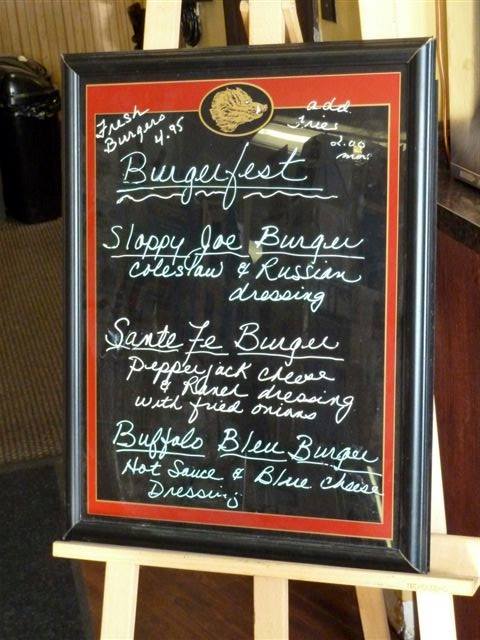 Fresh
Burgers
4.95
add
Fries
2.00
more
Burgerfest
Sloppy Joe Burger
coleslaw & Russian
dressing
Sante Fe Burger
Pepper jack cheese
& Ranch dressing
with fried onions
Buffalo Bleu Burger
Hot Sauce & Blue cheese
Dressing